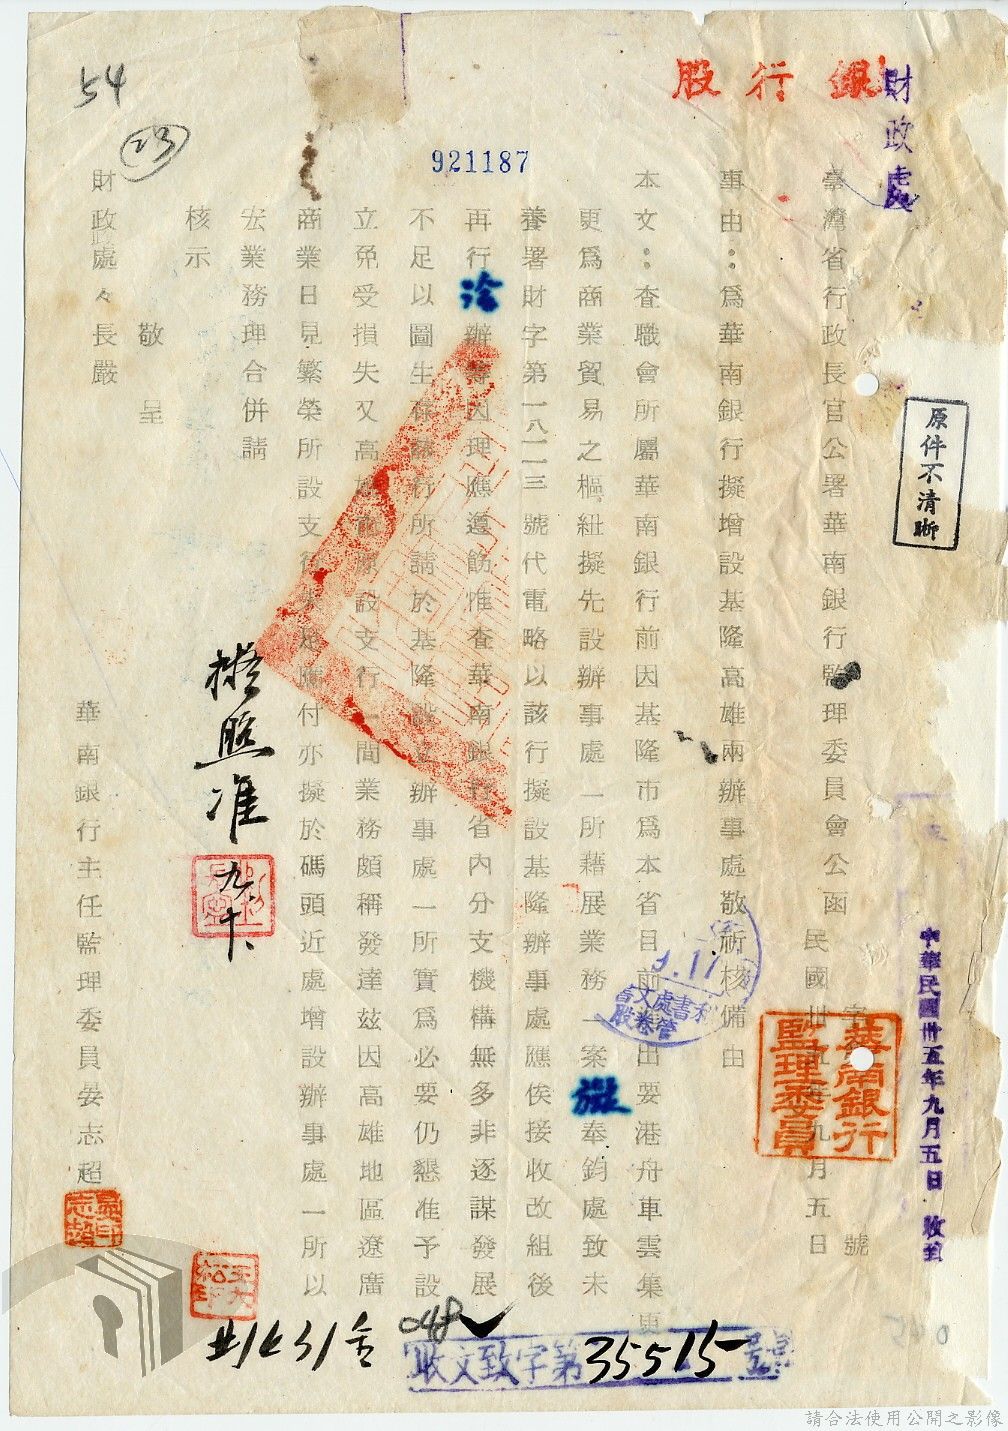 財政處
銀行股
921187
54
23
原件不清晰
臺灣省行政長官公署華南銀行監理委員會公函
字第 號
民國卅五年九月五日
中華民國卅五年九月五日 收到
華南銀行監理委員
事由：為華南銀行擬增設基隆高雄兩辦事處敬祈核備由
本文：查職會所屬華南銀行前因基隆市為本省目前進出要港舟車雲集更
更為商業貿易之樞紐擬先設辦事處一所藉展業務一案擬奉鈞處致未
養署財字第一八一一三號代電略以該行擬設基隆辦事處應俟接收改組後
再行洽辦等因理應遵飭惟查華南銀行省內分支機構無多非逐謀發展
不足以圖生存該行所請於基隆設立辦事處一所實為必要仍懇准予設
立免受損失又高雄市原設支行一間業務頗稱發達茲因高雄地區遼廣
商業日見繁榮所設支行未足應付亦擬於碼頭近處增設辦事處一所以
宏業務理合併請
核示
敬呈
財政處々長嚴
華南銀行主任監理委員晏志超
擬照准
九、十、
9.17
收文致字第35515號
048
請合法使用公開之影像